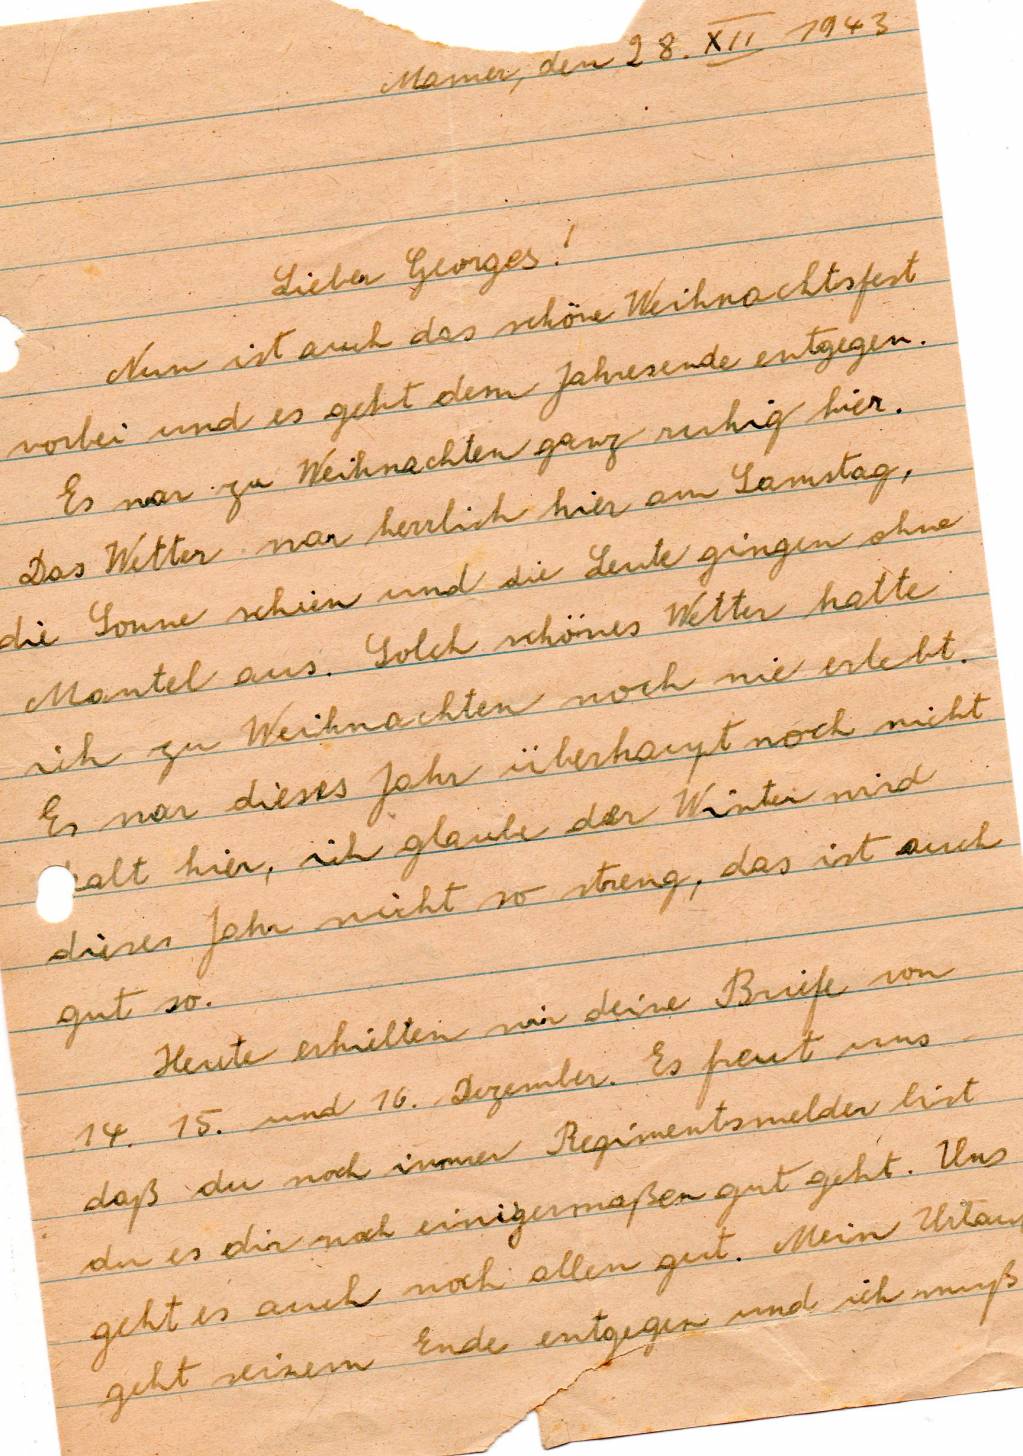 Mamer, den 28. XII 1943
Lieber Georges!
Nun ist auch das schöne Weihnachtsfest
vorbei und es geht dem Jahresende entgegen.
Es war zu Weihnachten ganz ruhig hier.
Das Wetter war herrlich hier am Samstag,
die Sonne schien und die Leute gingen ohne
Mantel aus. Solch schönes Wetter hatte
ich zu Weihnachten noch nie erlebt.
Es war dieses Jahr überhaupt noch nicht
kalt hier, ich glaube der Winter wird
dieses Jahr nicht so streng, das ist auch
gut so.
Heute erhielten wir deine Briefe von
14. 15. und 16. Dezember. Es freut uns
daß du noch immer Regimentsmelder bist
du es dir noch einigermaßen gut geht. Uns
geht es auch noch allen gut. Mein Urlau
geht seinem Ende entgegen und ich muß